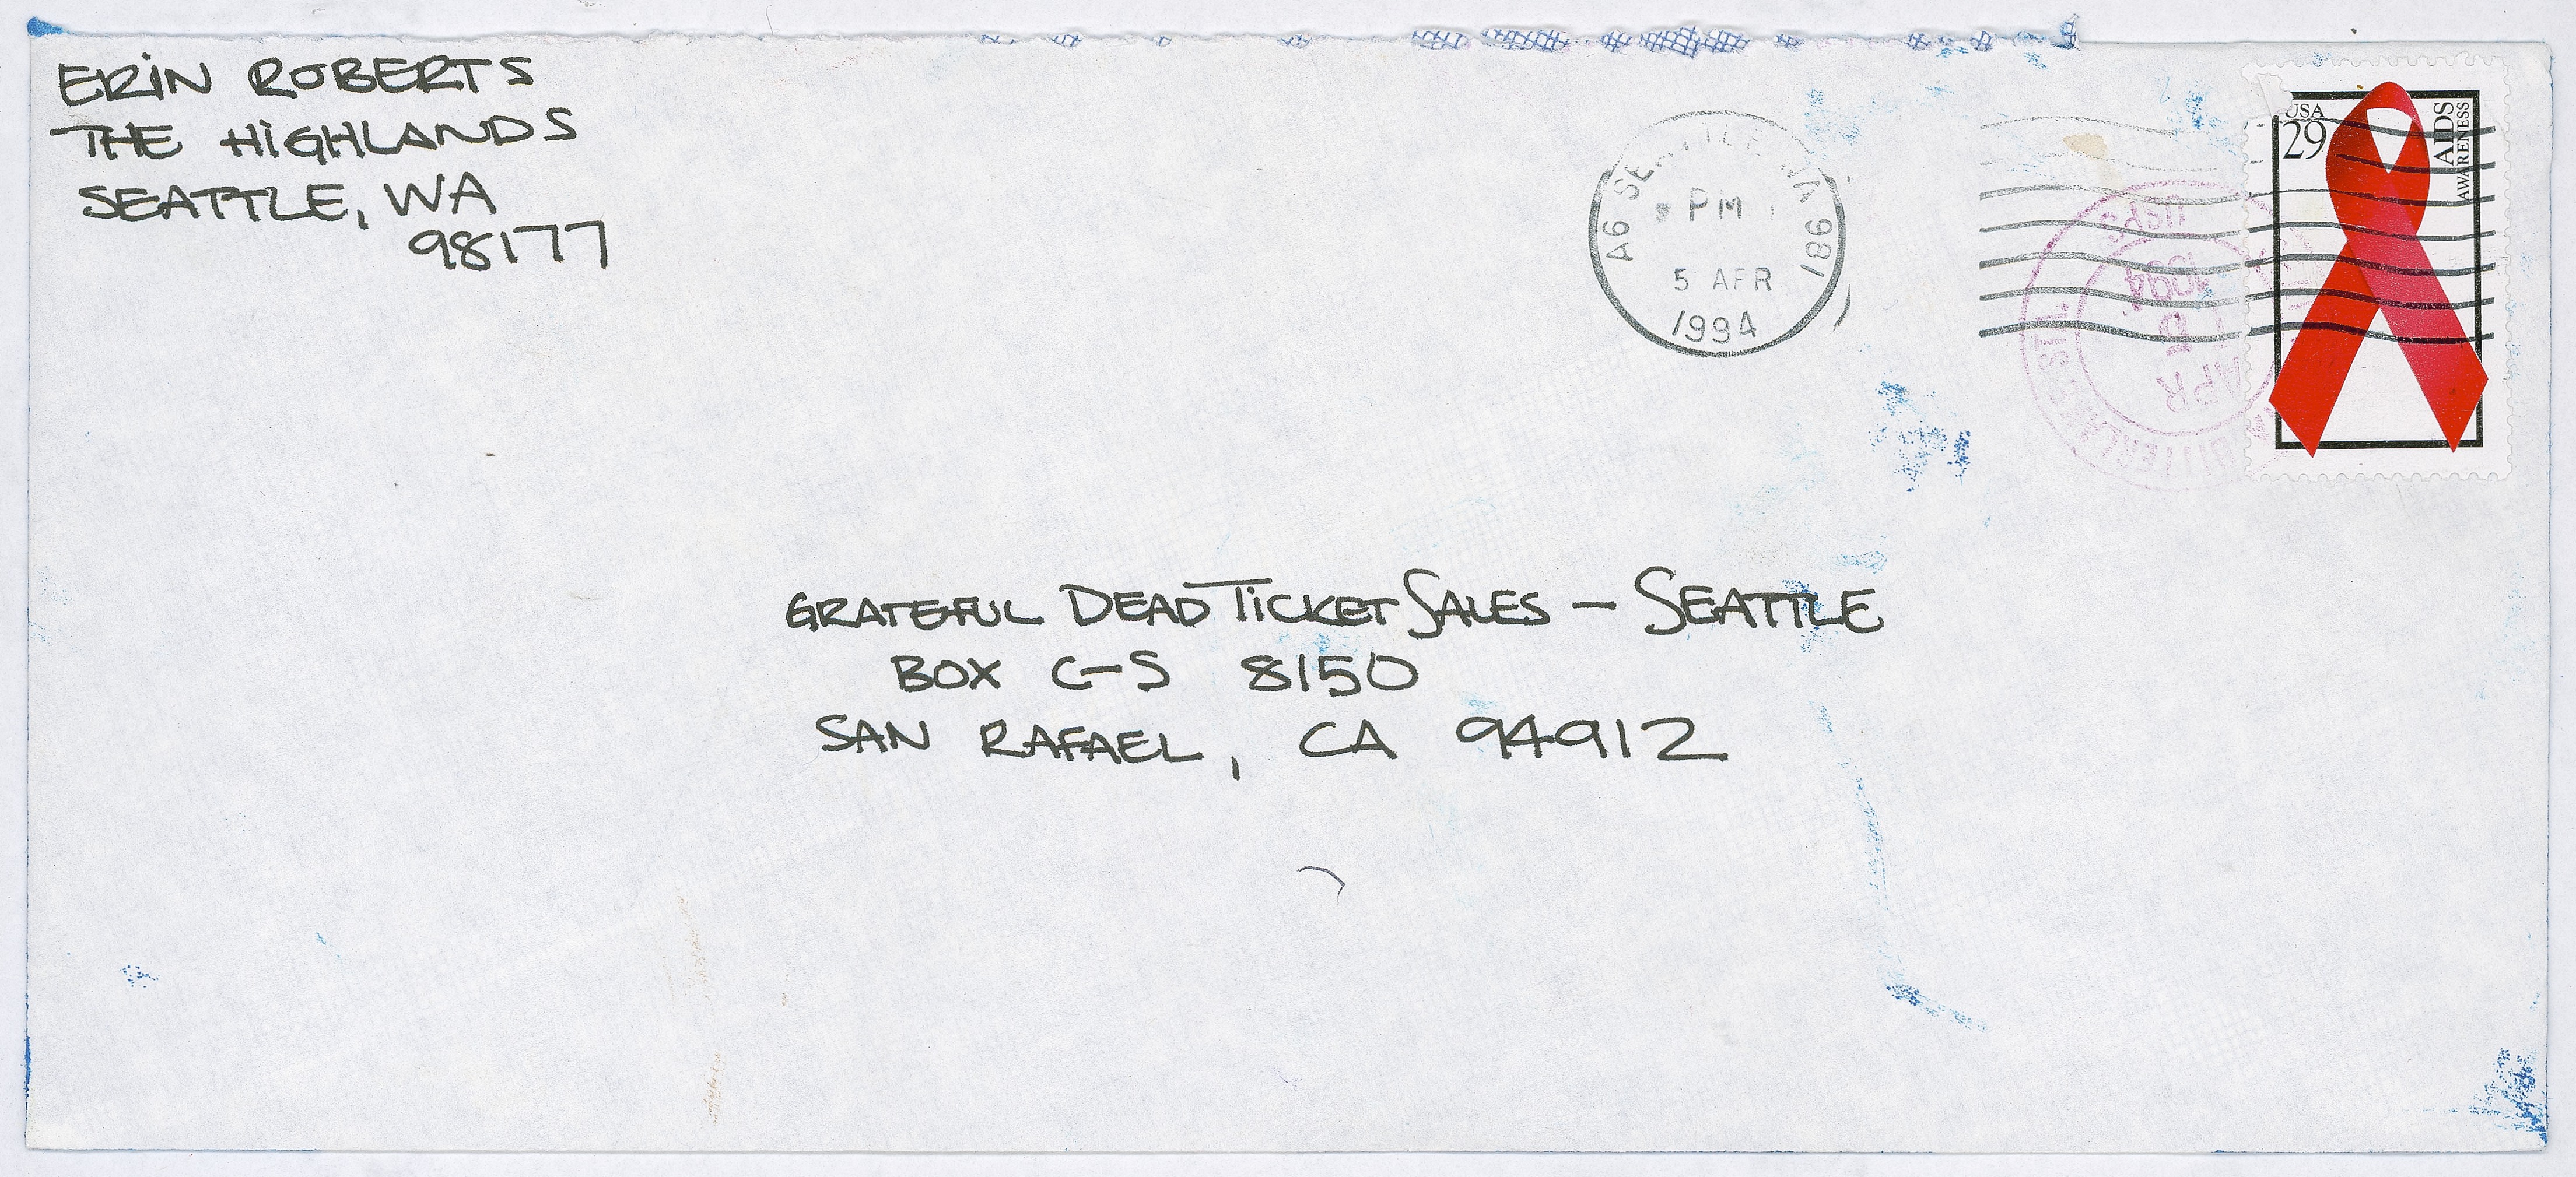 ERIN ROBERTS
THE HIGHLANDS
SEATTLE, WA
98177
A6 SE 981
PM
5 APR
1994
USA
29
AIDS
AWARENESS
USPS
1994
APR
GRATEFUL DEAD TICKET SALES – SEATTLE
BOX C-S 8150
SAN RAFAEL, CA 94912